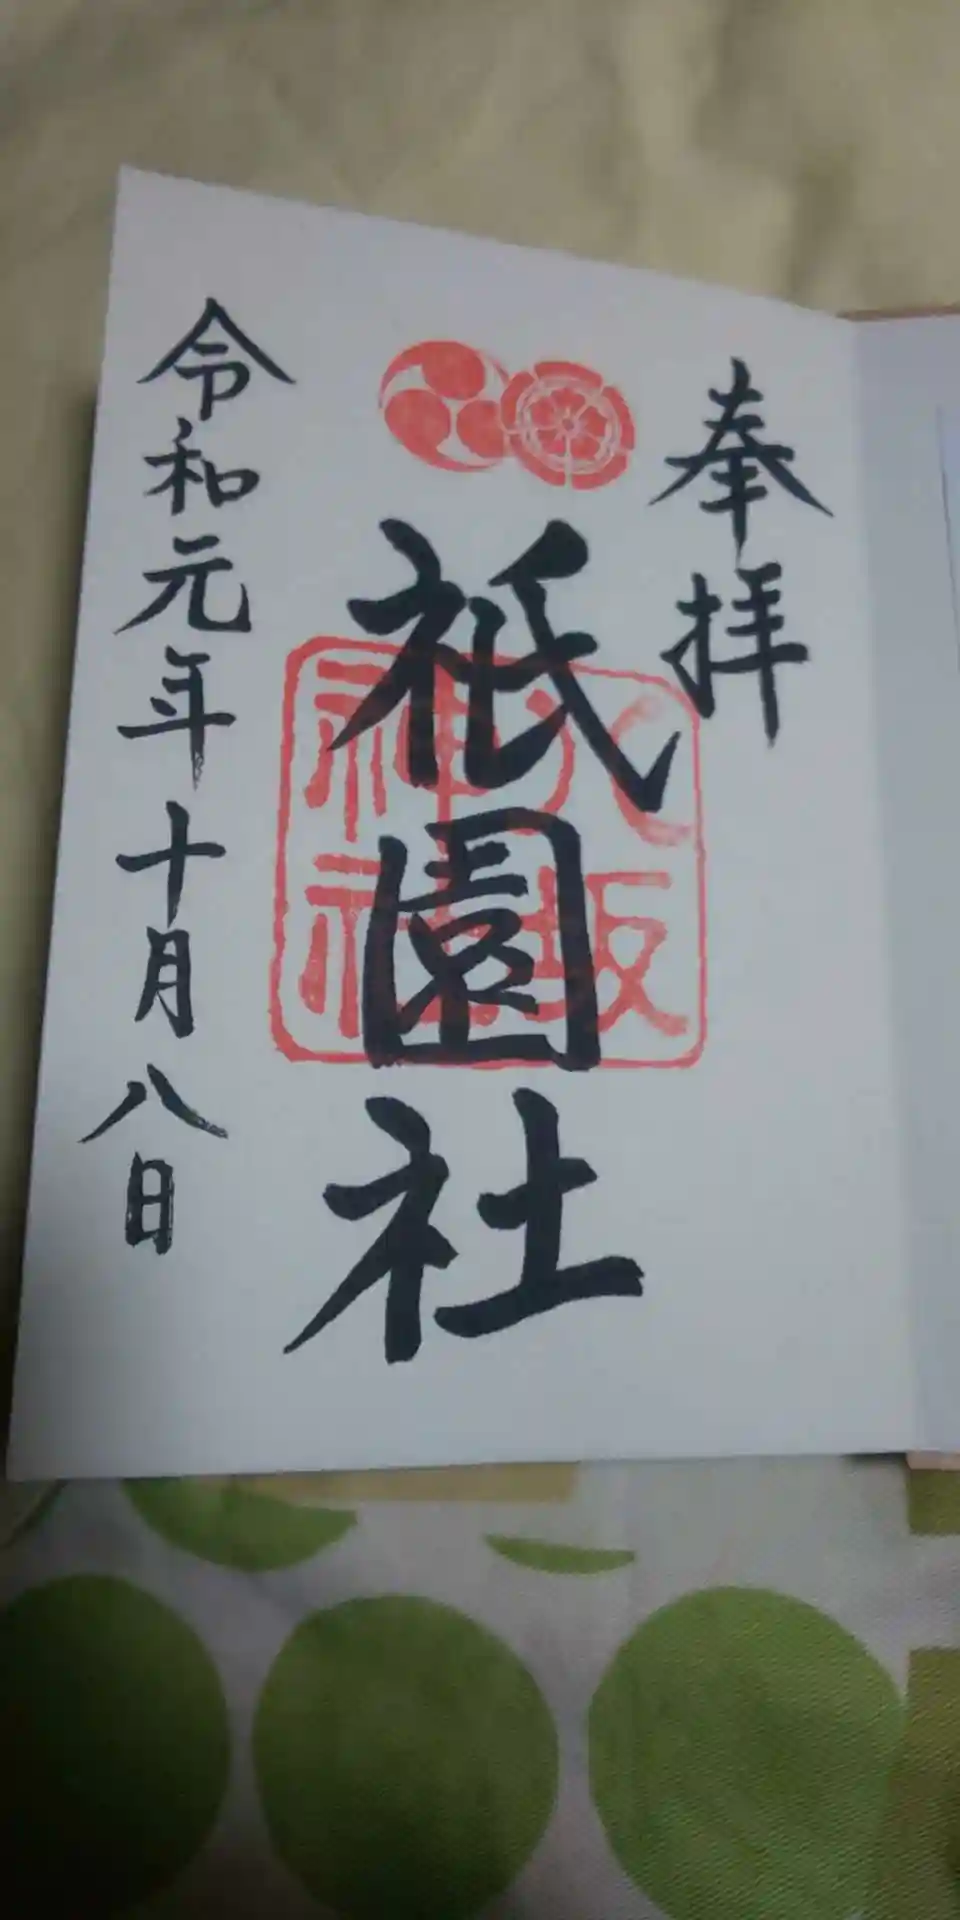 奉拝
祇園社
八坂
神社
令和元年十月八日